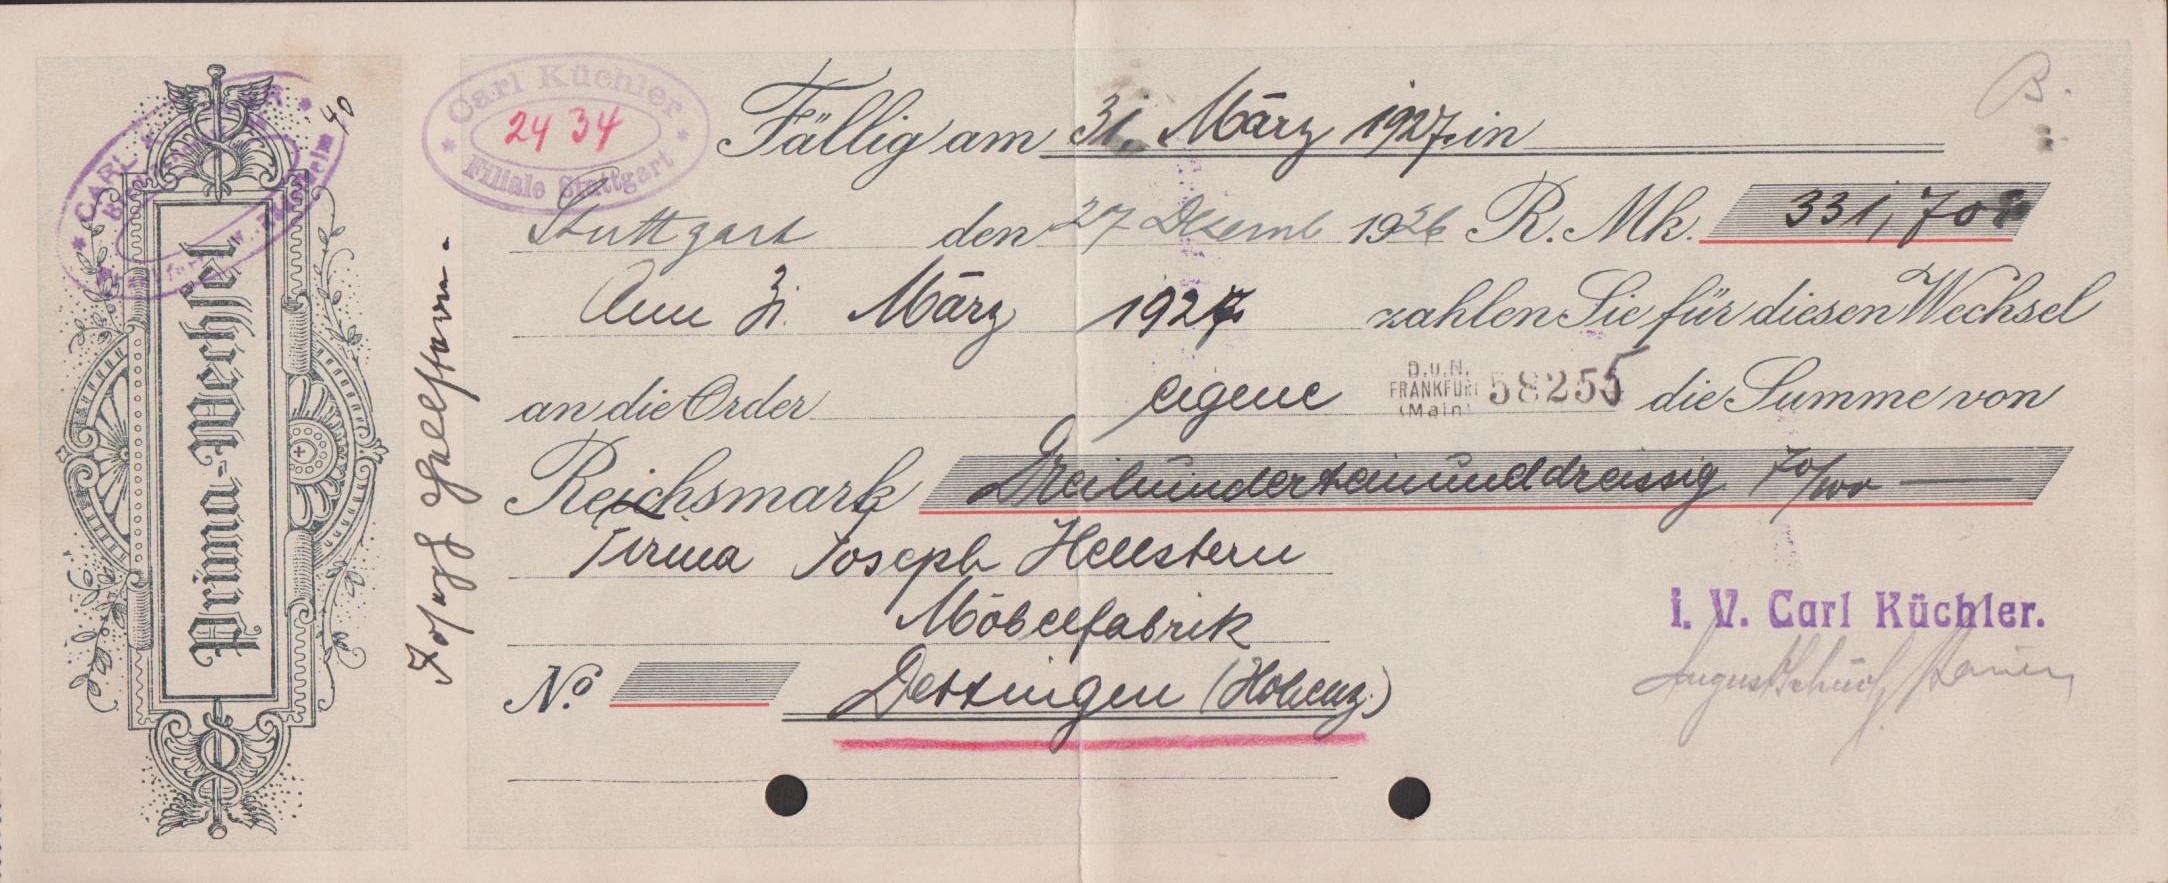 Prima-Wechsel
CARL
Carl Küchler
2434
Filiale Stuttgart
40
B.
Fällig am 31. März 1927. in
Stuttgart den 27 Dezemb 1926 R. Mk. 331,70
Am 31. März 1927 zahlen Sie für diesen Wechsel
an die Order eigene D.u.N. FRANKFURT (Main) 58255 die Summe von
Reichsmark Dreihunderteinunddreissig 70/100
Firma Joseph Hellstern
Möbelfabrik
No. Dettingen (Hohenz.)
Joseph Hellstern.
i. V. Carl Küchler.
August